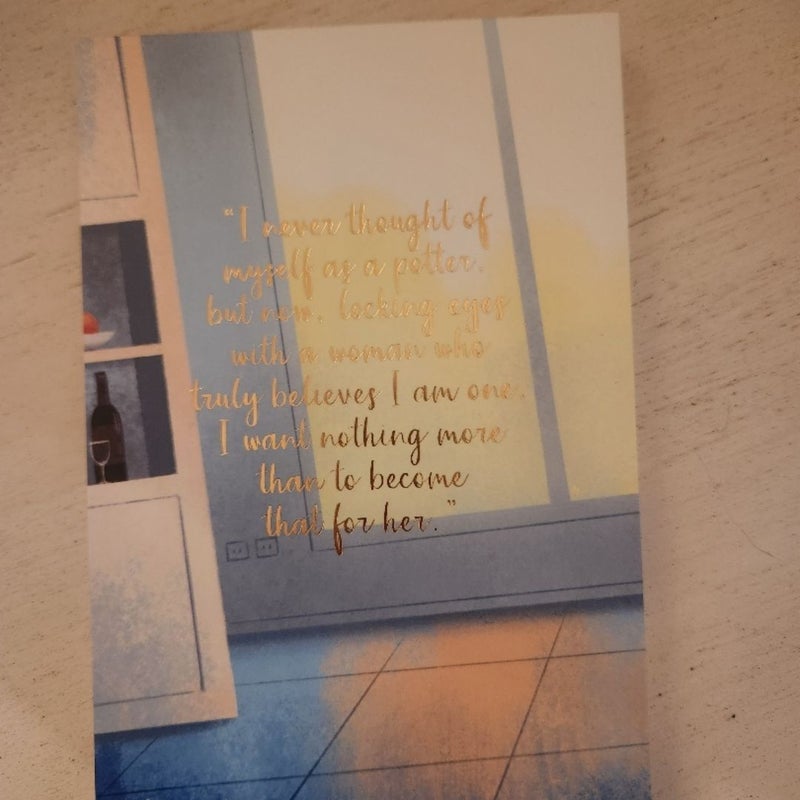 "I never thought of
myself as a potter,
but now, locking eyes
with a woman who
truly believes I am one,
I want nothing more
than to become
that for her."